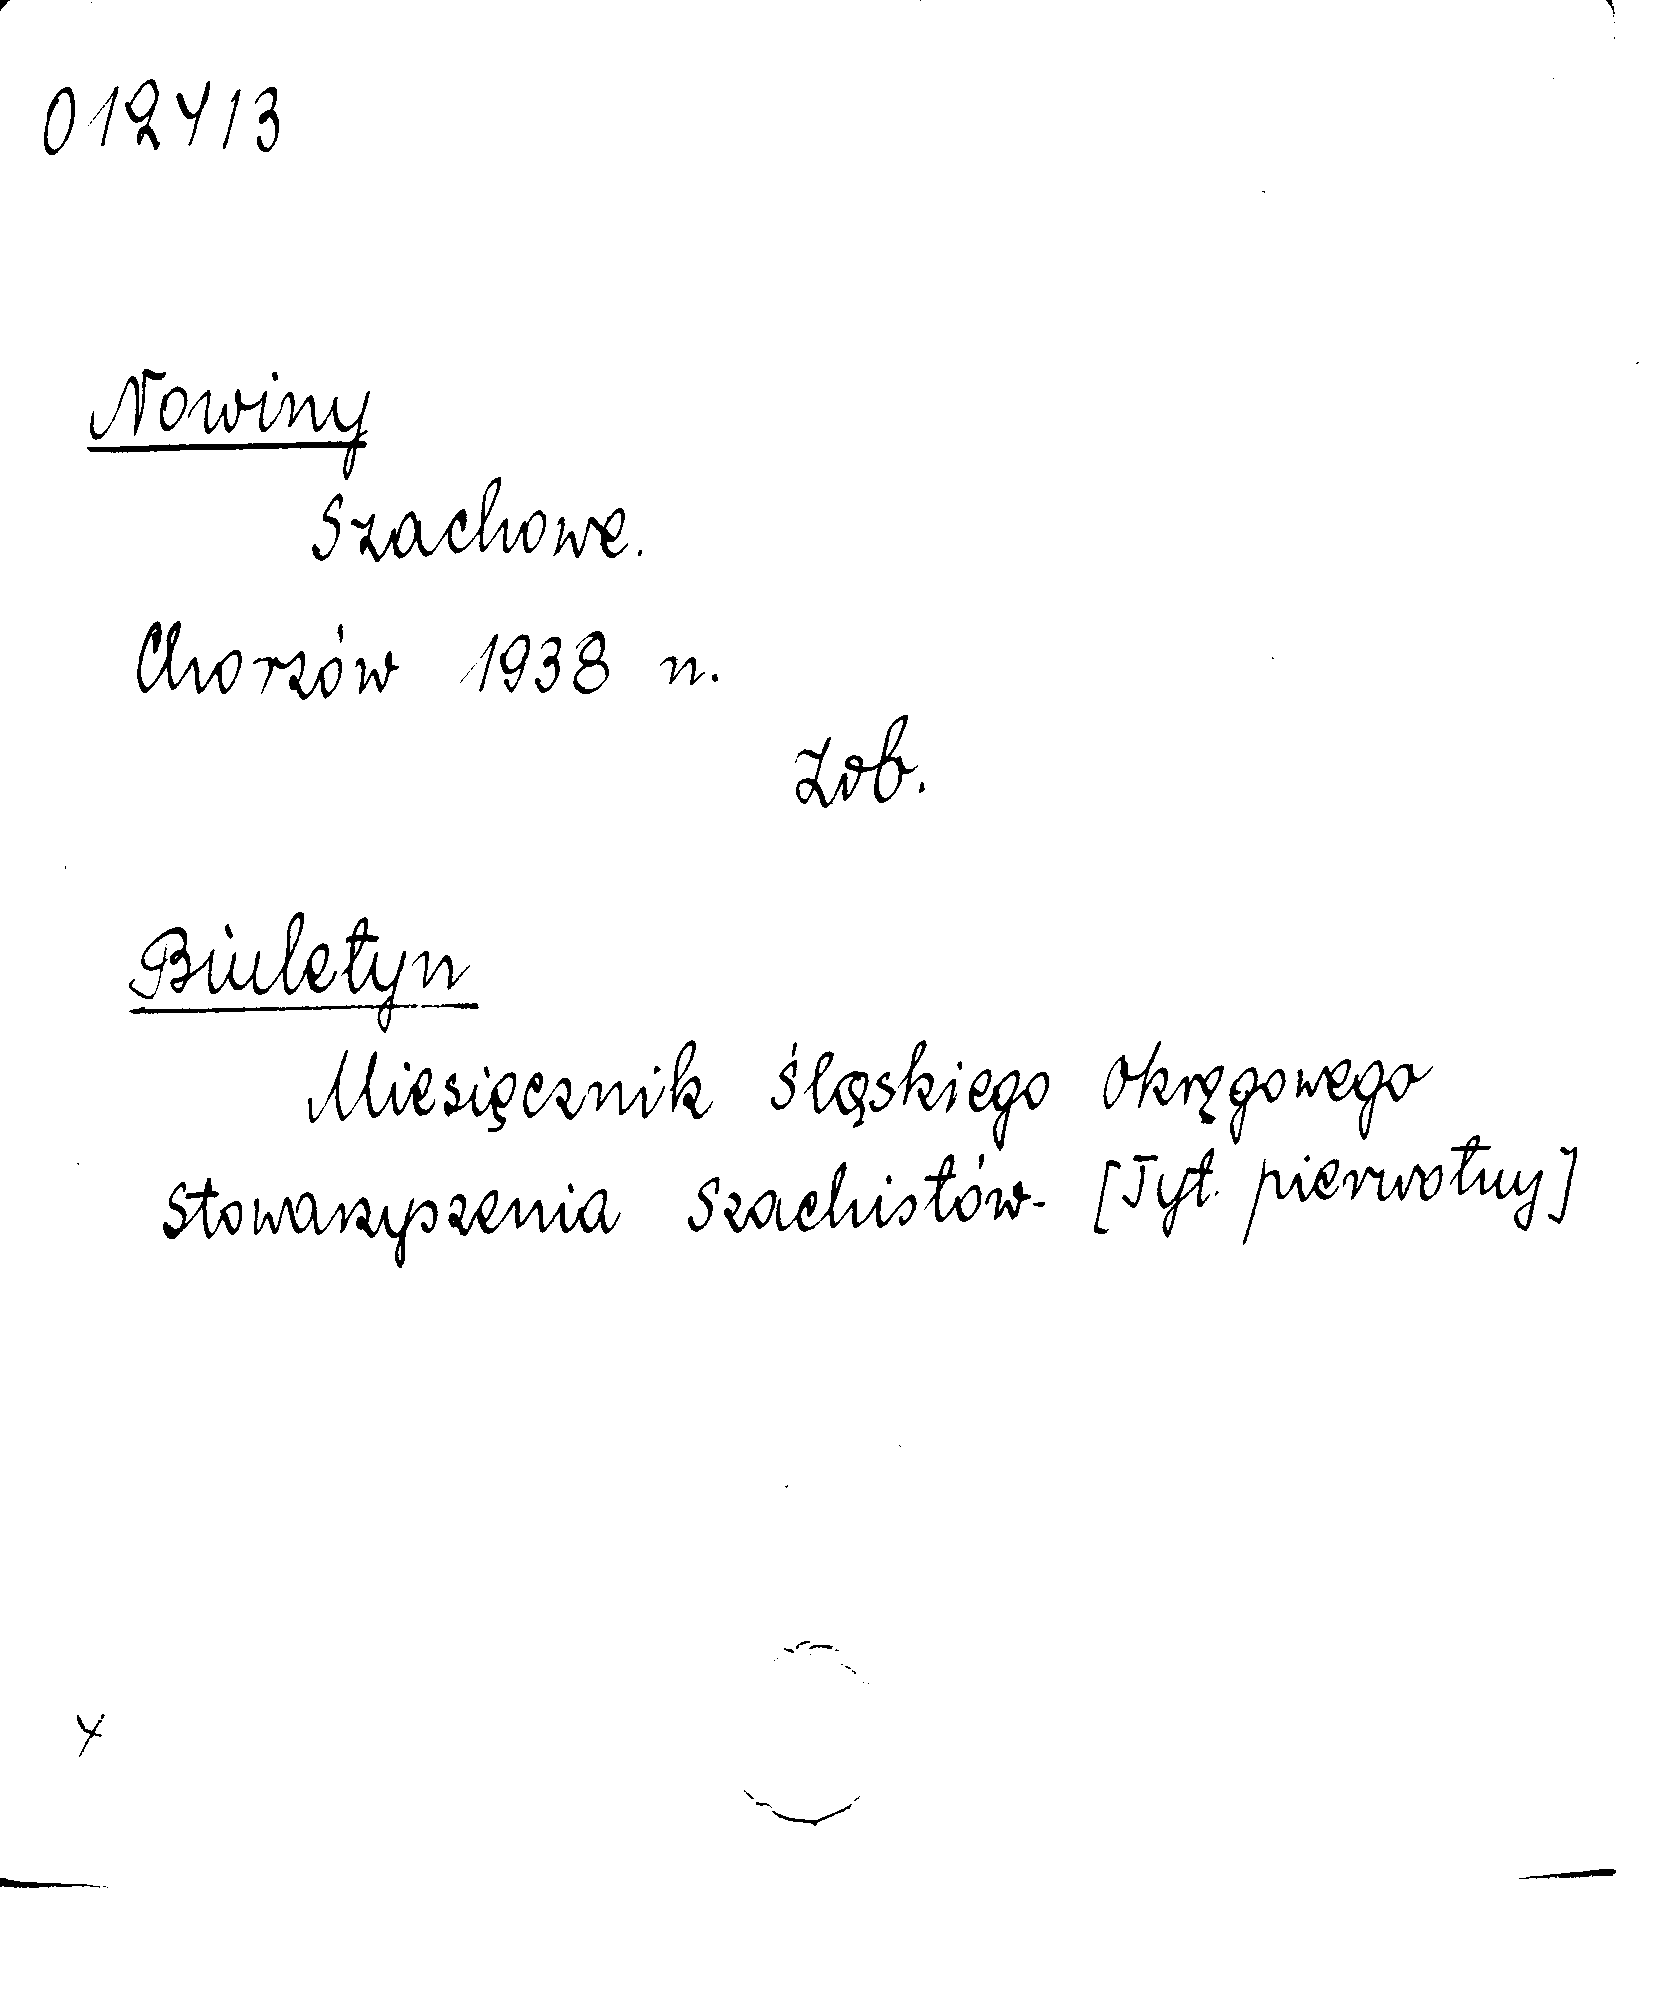 012413
Nowiny
Szachowe.
Chorzów 1938 n.
Zob.
Biuletyn
Miesięcznik Śląskiego Okręgowego
Stowarzyszenia Szachistów. [Tyt. pierwotny]